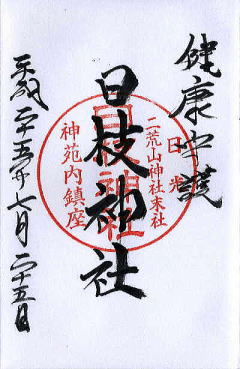 健康守護
日光
二荒山神社末社
日枝神社
日枝神社
神苑内鎮座
平成二十五年七月二十五日